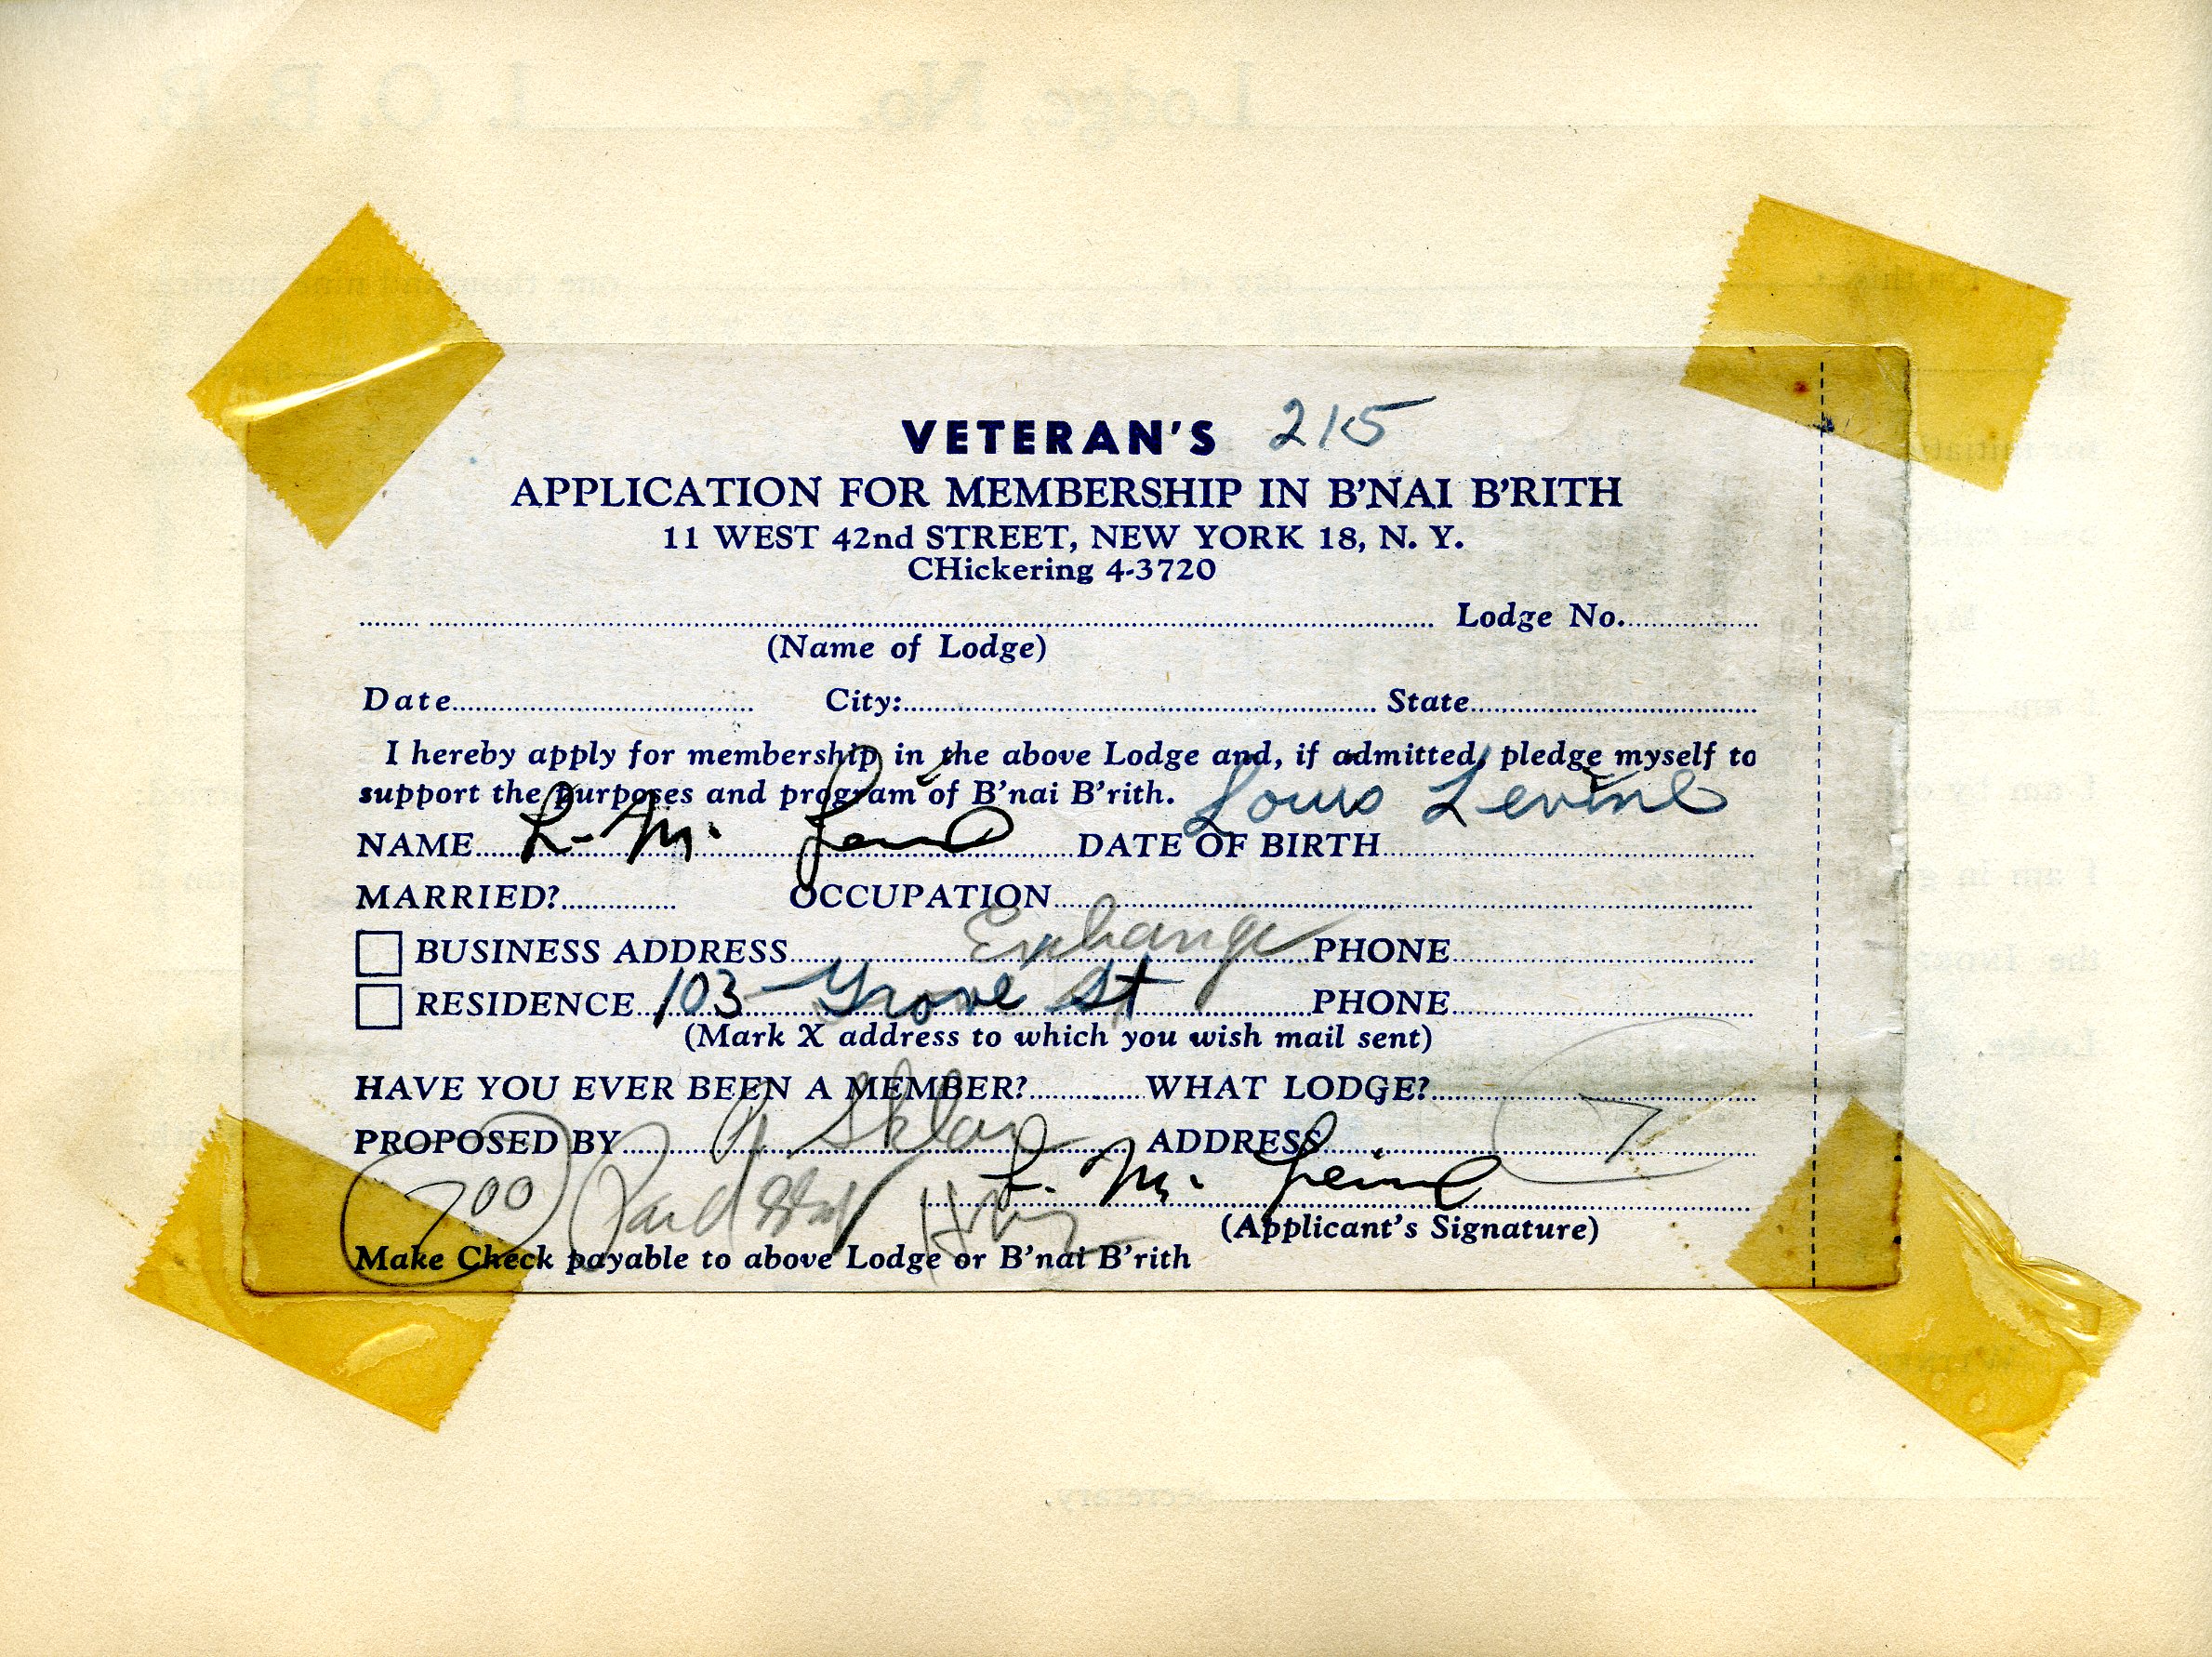 VETERAN'S 215
APPLICATION FOR MEMBERSHIP IN B'NAI B'RITH
11 WEST 42nd STREET, NEW YORK 18, N. Y.
CHickering 4-3720
Lodge No.
(Name of Lodge)
Date City: State
I hereby apply for membership in the above Lodge and, if admitted, pledge myself to
support the purposes and program of B'nai B'rith. Louis Levine
NAME L. M. Levine DATE OF BIRTH
MARRIED? OCCUPATION
BUSINESS ADDRESS Exchange PHONE
RESIDENCE 103 Grove St PHONE
(Mark X address to which you wish mail sent)
HAVE YOU EVER BEEN A MEMBER? WHAT LODGE?
PROPOSED BY Sklar ADDRESS 7
700 Paid L. M. Levine
(Applicant's Signature)
Make Check payable to above Lodge or B'nai B'rith